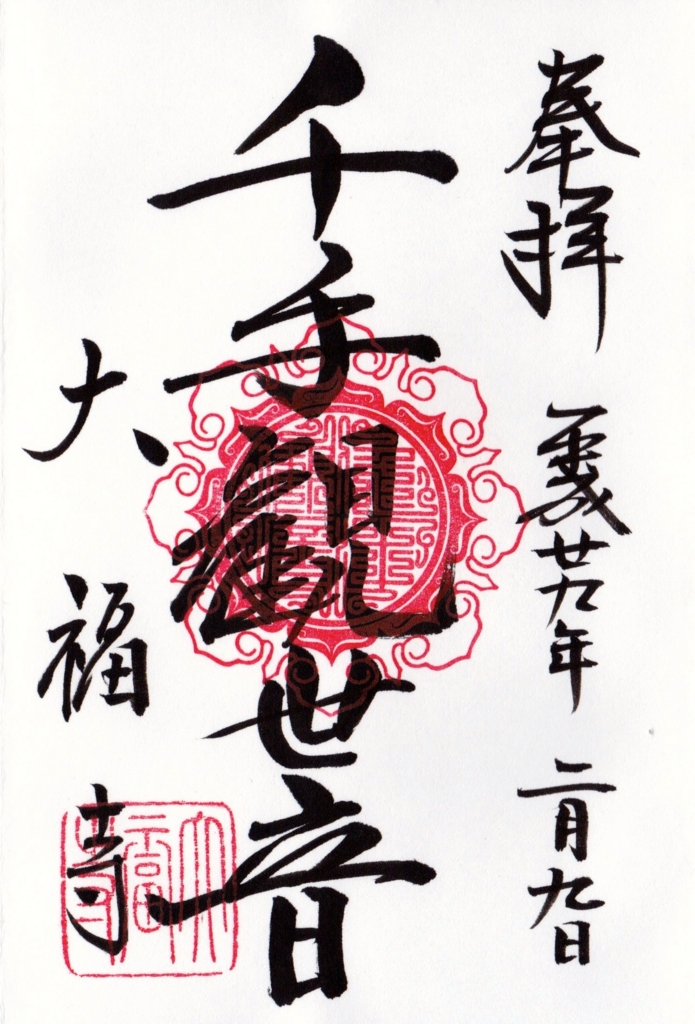 奉拝 平成廿九年 二月九日
千手観世音
大福寺
大福寺